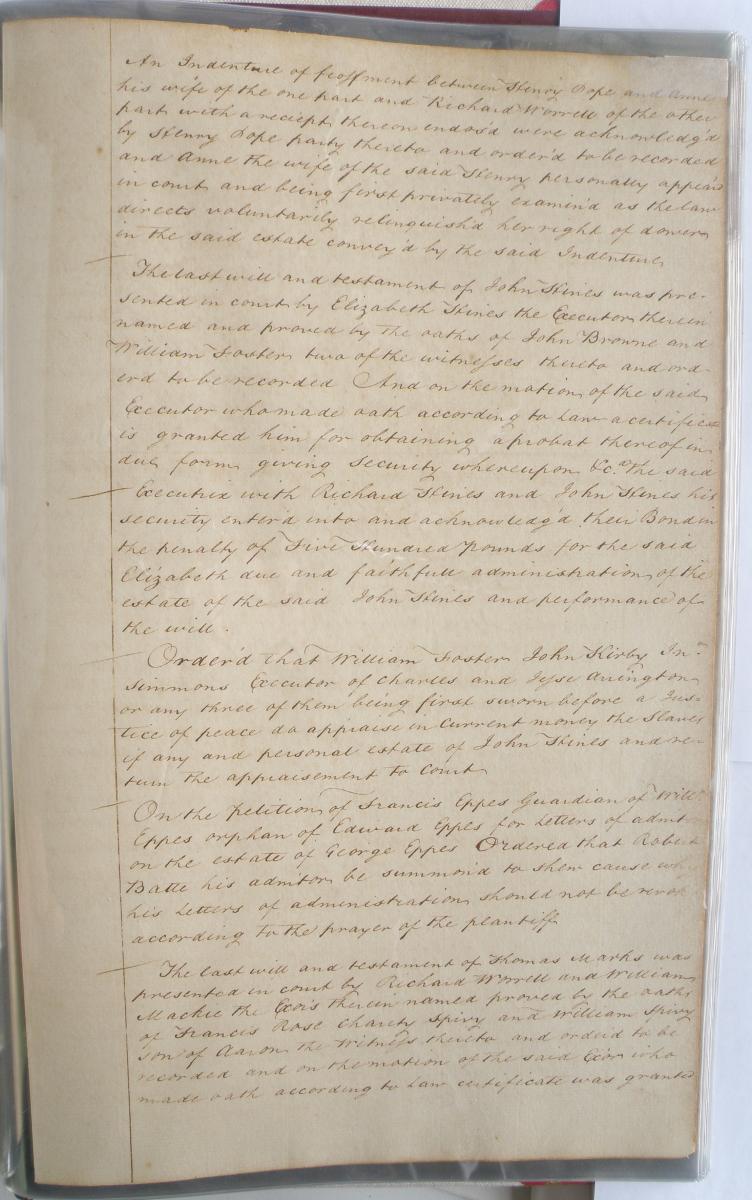 An Indenture of feoffment between Henry Pope and Anne
his wife of the one part and Richard Worrell of the other
part with a reciept thereon endors'd were acknowledg'd
by Henry Pope party thereto and order'd to be recorded
and Anne the wife of the said Henry personally appear'd
in court and being first privately examin'd as the law
directs voluntarily relinquish'd her right of dower
in the said estate convey'd by the said Indenture
The last will and testament of John Hines was pre-
sented in court by Elizabeth Hines the Executor therein
named and proved by the oaths of John Browne and
William Foster two of the witnesses thereto and ord-
erd to be recorded And on the motion of the said
Executor who made oath according to Law a certificate
is granted him for obtaining a probat thereof in
due form giving security whereupon &c. the said
Executrix with Richard Hines and John Hines his
security enter'd into and acknowledg'd their Bond in
the penalty of Five Hundred Pounds for the said
Elizabeth due and faithfull administration of the
estate of the said John Hines and performance of
the will.
Order'd that William Foster John Kirby
Simmons Executor of Charles and Jesse Arrington
or any three of them being first sworn before a Jus-
tice of peace do appraise in Current money the Slaves
if any and personal estate of John Hines and re-
turn the appraisement to Court
On the petition of Francis Eppes Guardian of Will.m
Eppes orphan of Edward Eppes for Letters of admtor
on the estate of George Eppes Ordered that Robert
Batte his admtor be summon'd to shew cause why
his Letters of administration should not be revok
according to the prayer of the plantiff
The last will and testament of Thomas Marks was
presented in court by Richard Worrell and William
Mackie the Exors therein named proved by the oaths
of Francis Rose Charity Spivy and William Spivy
son of Aaron the Witness thereto and order'd to be
recorded and on the motion of the said Exor who
made oath according to Law certificate was granted